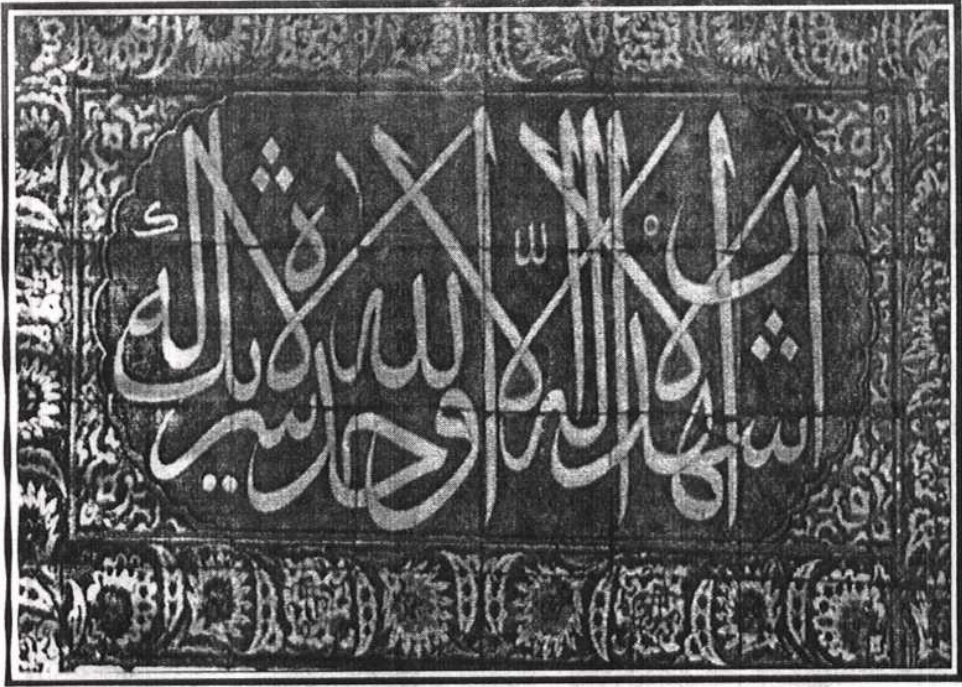 اشهد ان لا اله الا الله وحده لا شريك له